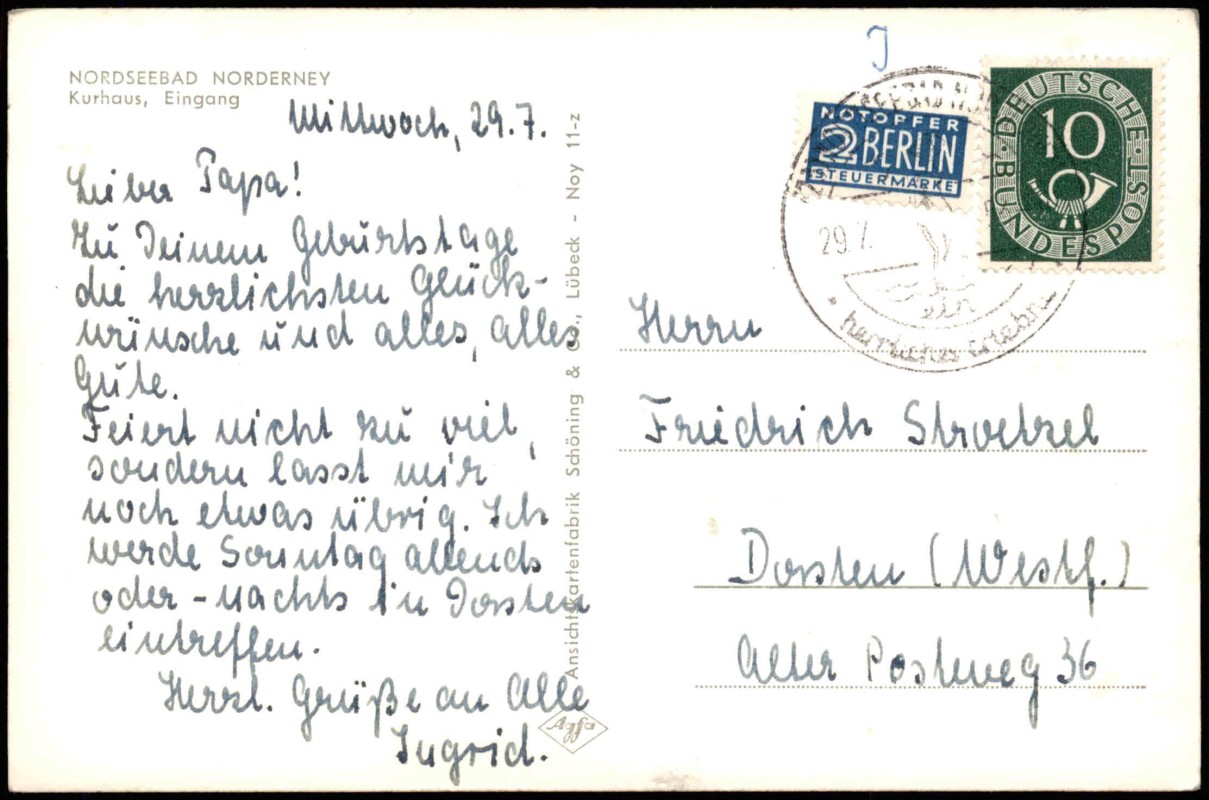 NORDSEEBAD NORDERNEY
Kurhaus, Eingang
Mittwoch, 29.7.
Lieber Papa!
Zu Deinem Geburtstage
die herzlichsten Glück-
wünsche und alles, alles
Gute.
Feiert nicht zu viel,
sondern lasst mir
noch etwas übrig. Ich
werde Sonntag abends
oder -nachts in Dorsten
eintreffen.
Herzl. Grüße an Alle
Ingrid.
Ansichtskartenfabrik Schöning & Co., Lübeck - Noy 11-z
Agfa
J
NOTOPFER
2 BERLIN
STEUERMARKE
DEUTSCHE BUNDESPOST
10
29.7.
ein
herrliches
Herrn
Friedrich Stroetzel
Dorsten (Westf.)
Alter Postweg 36